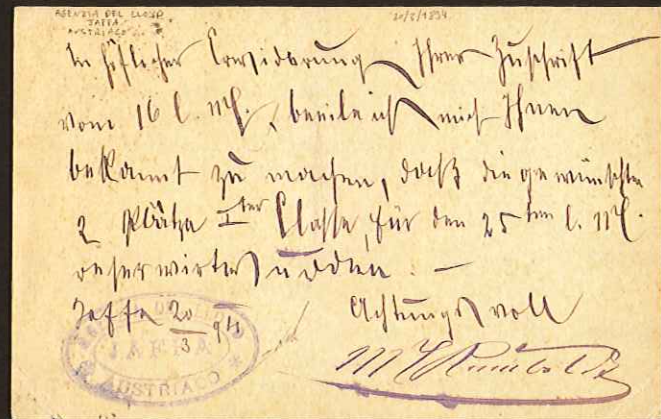 AGENZIA DEL LLOYD
JAFFA
AUSTRIACO
20/3/1894
In höflicher Erwiderung Ihrer Zuschrift
vom 16 l. M., beeile ich mich Ihnen
bekannt zu machen, daß die gewünschten
2 Plätze Iter Classe, für den 25ten l. M.
reservirt wurden. –
Jaffa 20/3 94 Achtungsvoll
JAFFA
AUSTRIACO